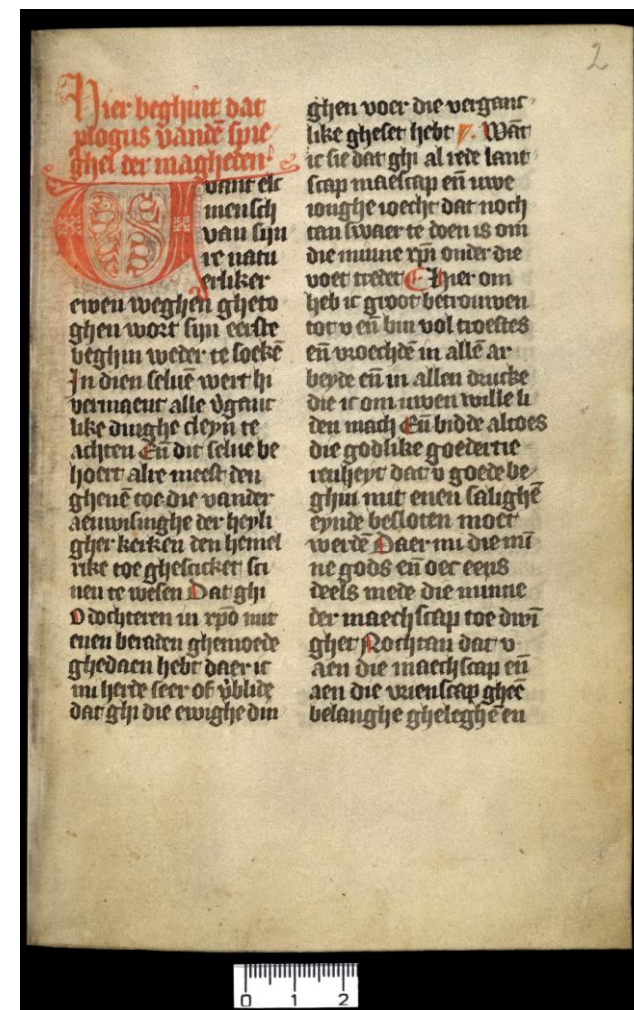 2
Hier beghint dat
plogus vandē spie
ghel der magheden
Want elc
mensch
van sijn
re natu
erliker
ewen weghen gheto
ghen wort sijn eerste
beghin weder te soekē
In dien seluē wert hi
vermaent alle v̄gant
like dinghe cleyn te
achten Eñ dit selue be
hoert alre meest den
ghenē toe die vander
aenwisinghe der heyli
gher kerken den hemel
rike toe ghescicket sci
nen te wesen Dat ghi
O dochteren in xp̄o mit
enen beraden ghemoede
ghedaen hebt daer ic
mi herde seer of v̄blide
dat ghi die ewighe din
ghen voer die verganc
like gheset hebt Wāt
ic sie dat ghi al rede lant
scap maescap eñ uwe
ionghe ioecht dat noch
tan swaer te doen is om
die minne xp̄i onder die
voet tredet Hier om
heb ic groot betrouwen
tot v eñ bin vol troestes
eñ vroechdē in allē ar
beyde eñ in allen drucke
die ic om uwen wille li
den mach Eñ bidde altoes
die godlike goedertie
renheyt dat v goede be
ghin mit enen salighē
eynde besloten moet
werdē Daer mi die mī
ne gods eñ oec eens
deels mede die minne
der maechscap toe dwī
ghet Nochtan dat v
aen die maechscap eñ
aen die vrienscap gheē
belanghe gheleghē en